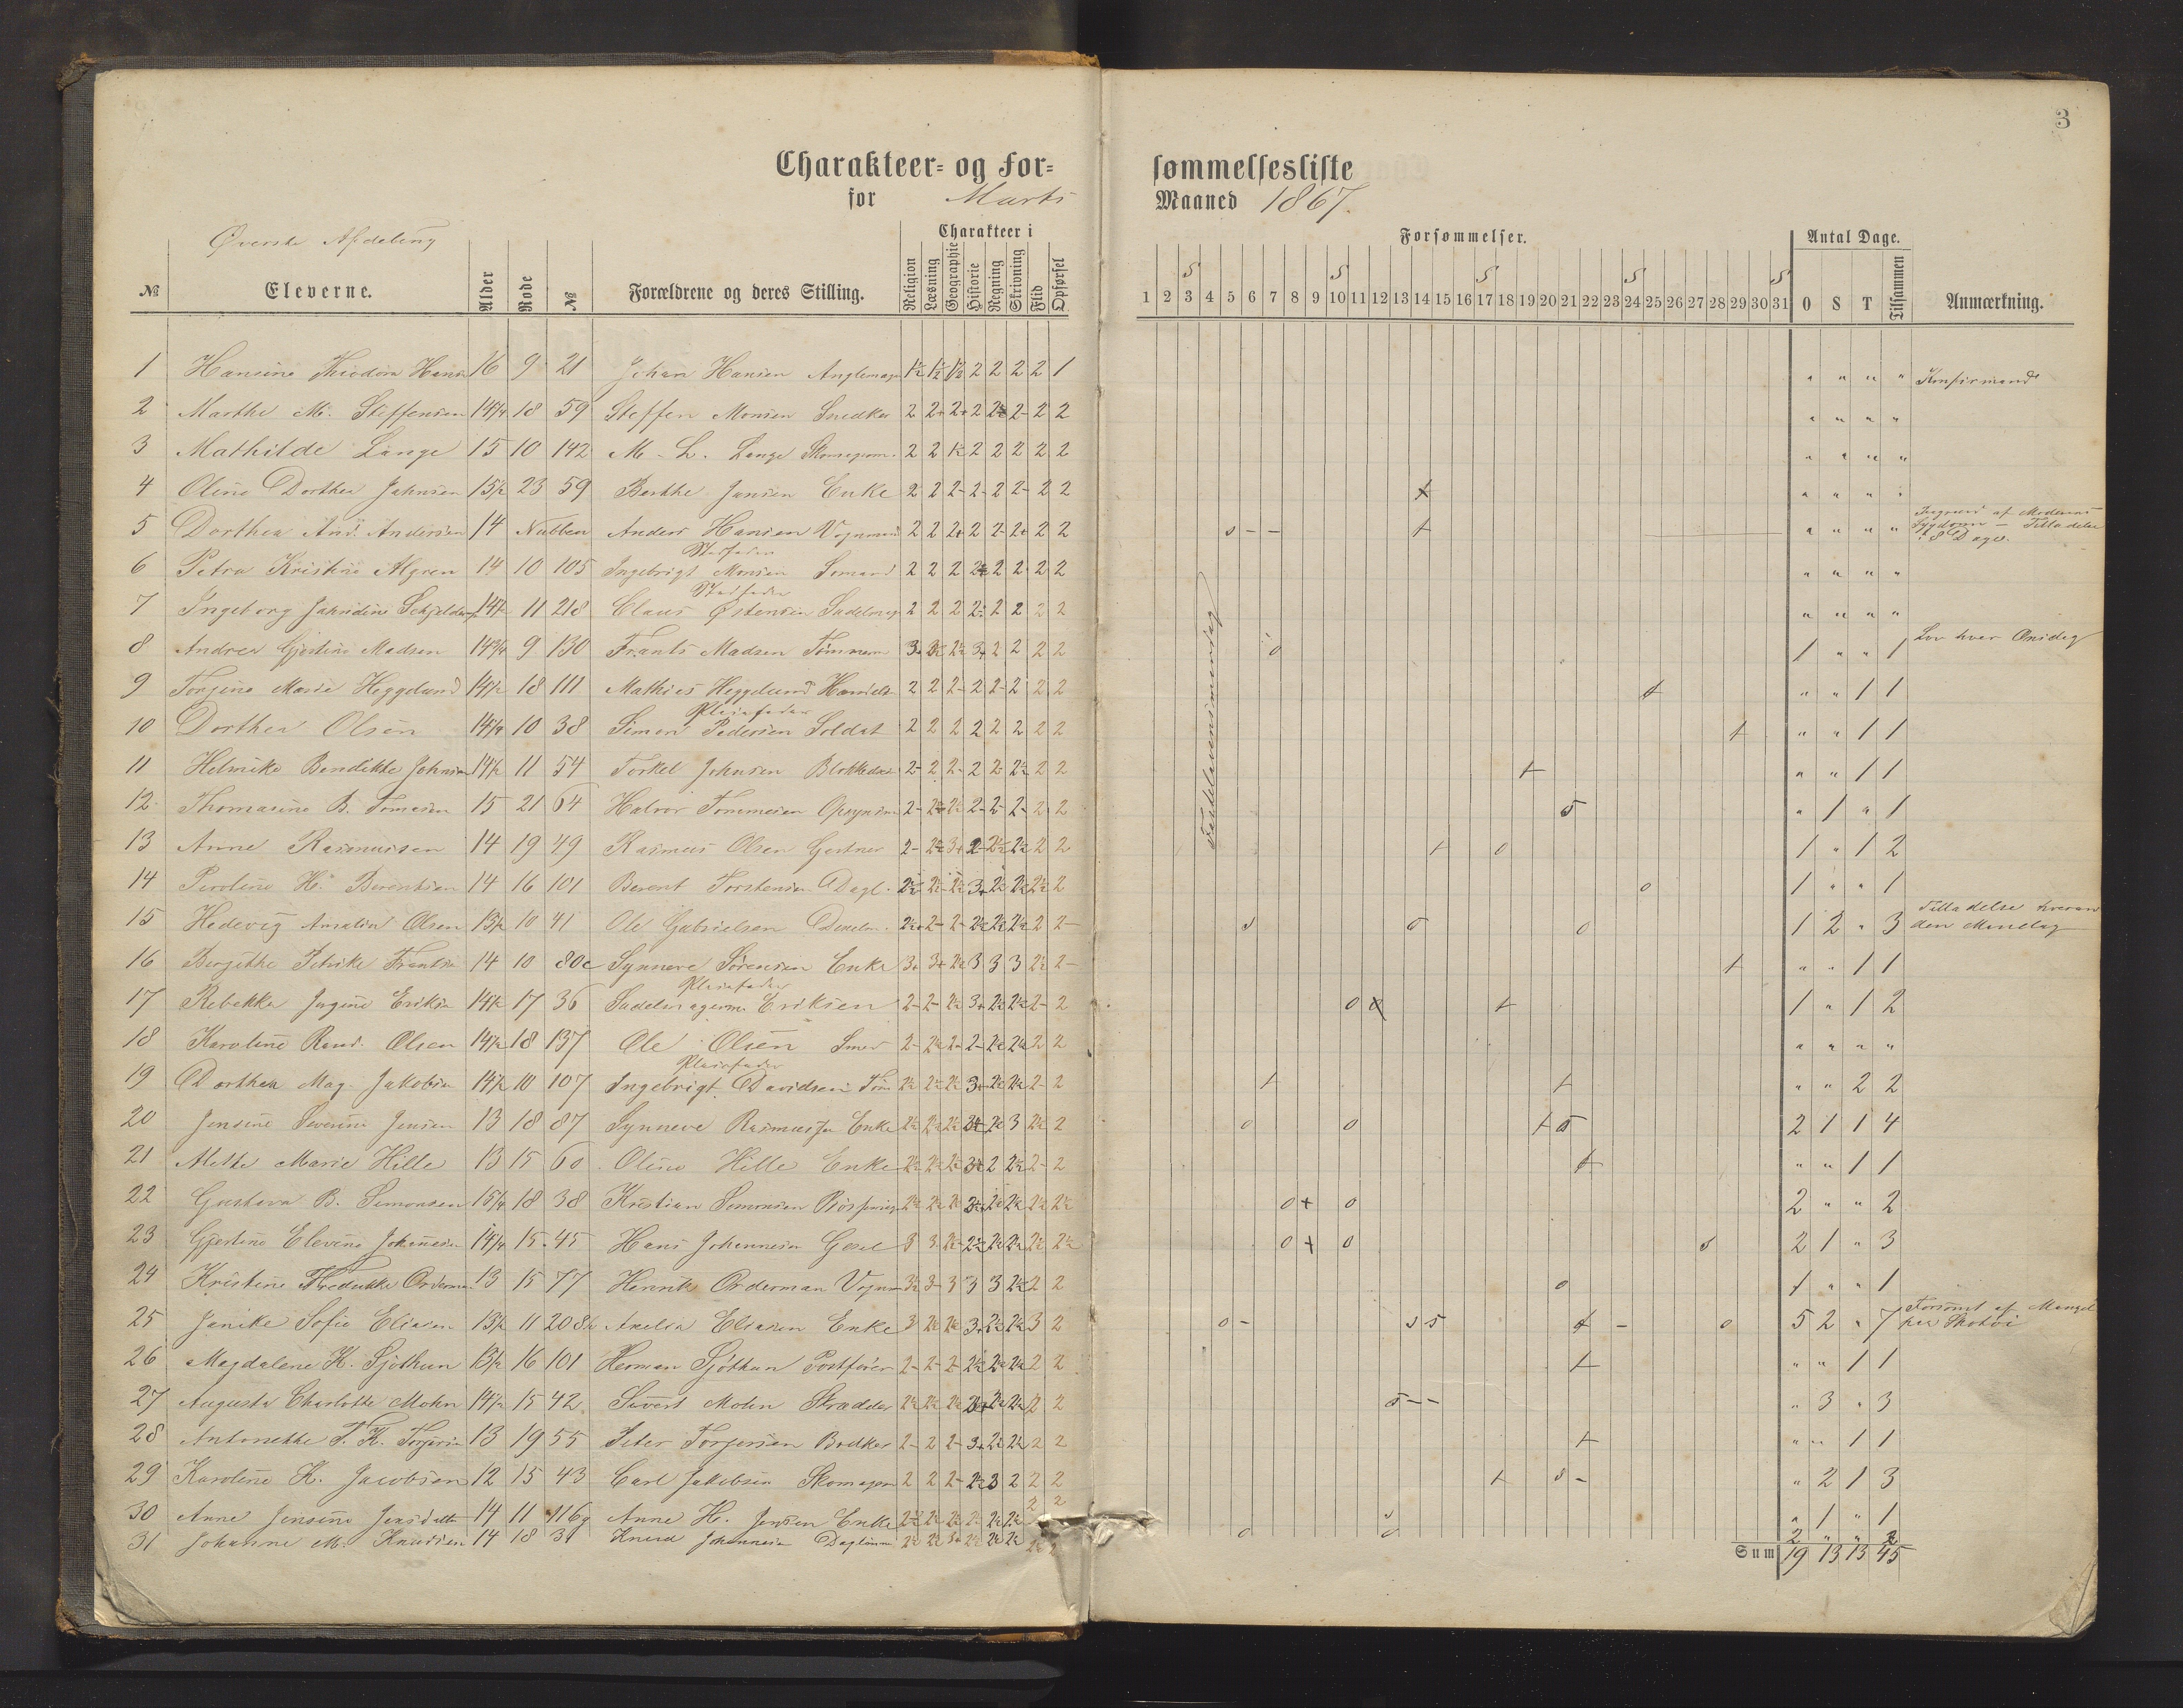 3
Charakteer- og For-
sømmelsesliste
for Marts
Maaned 1867.
Øverste Afdeling
Charakteer i
Forsømmelser.
Antal Dage.
№ Eleverne. Alder Rode № Forældrene og deres Stilling. Religion Læsning Geographie Historie Regning Skrivning Flid Opførsel
S S S S S
1 2 3 4 5 6 7 8 9 10 11 12 13 14 15 16 17 18 19 20 21 22 23 24 25 26 27 28 29 30 31 O S T Tilsammen Anmærkning.
Fastelavensmandag
1 Hansine Theodora 16 9 21 Johan Hansen 1½ 1½ 1½ 2 2 2 2 1 " " " " Konfirmand
2 Marthe M. Steffensen 14¾ 18 59 Steffen Monsen Snedker 2 2+ 2+ 2 2- 2 2 " " " "
3 Mathilde Lange 15 10 142 M. L. Lange 2 2 2 2 2 2 2 " " " "
4 Oline Dorthea Johnsen 15½ 23 59 Berthe Jansen Enke 2 2 2- 2- 2 2- 2 2 + " " " "
5 Dorthea And. Andersen 14 Nubben Anders Hansen Vognmand 2 2 2+ 2 2- 2+ 2 2 s - - + " " " " Sygdom – Tilladelse
8 Dage.
Stedfader
6 Petra Kristine Algren 14 10 105 Ingebrigt Monsen Sømand 2 2 2 2 2 2 2 " " " "
Stedfader
7 Ingeborg 14½ 11 218 Claus Østensen 2 2 2 2½ 2 2 2 2 " " " "
8 Andrea Gjertine Madsen 14¾ 9 130 Frants Madsen Tømmerm 3+ 2½ 2½ 3+ 2 2 2 2 o 1 " " 1 Lov hver Onsdag
9 Torgine Marie Heggelund 14½ 18 111 Mathias Heggelund 2 2 2- 2 2- 2 2 2 + " " 1 1
Pleiefader
10 Dorthea Olsen 14¾ 10 38 Simon Pedersen Soldat 2 2 2 2 2 2 2 2 + " " 1 1
11 Helmike Bendikte Johnsen 14½ 11 54 Torkel Johnsen 2- 2 2- 2 2- 2½ 2 2 + " " 1 1
12 Thomasine B. 15 21 64 Halvor Tommesen 2- 2½ 2½ 2- 2- 2- 2 2 s " 1 " 1
13 Anne Rasmussen 14 19 49 Rasmus Olsen Gartner 2- 2½ 3+ 2- 2½ 2½ 2 2 + o 1 " 1 2
14 H. Berentsen 14 16 101 Berent Torstensen Dagl. 2½ 2½ 2½ 3+ 2½ 2½ 2½ 2 o 1 " " 1
15 Hedevig Amalia Olsen 13½ 10 41 Ole Gabrielsen 2½ 2- 2- 2½ 2½ 2½ 2 2- s s o 1 2 " 3 Tilladelse hver
den Mandag
16 Bergitthe 14 10 80c Synneve Sørensen Enke 3+ 3+ 2½ 3 3 3 2½ 2- + " " 1 1
Pleiefader
17 Rebekka Jørgine 14½ 17 36 Eriksen 2- 2- 2½ 3+ 2½ 2½ 2- 2 o + 1 " 1 2
18 Karoline Rand. Olsen 14½ 18 137 Ole Olsen Smed 2- 2½ 2- 2- 2½ 2½ 2 2 " " " "
Pleiefader
19 Dorthea Mag. Jakobsen 14½ 10 107 Ingebrigt Davidsen 2½ 2½ 2½ 3+ 2½ 2½ 2- 2 + + " " 2 2
20 Jensine Severine Jensen 13 18 87 Synneve Enke 2½ 2½ 2½ 2½ 3 2½ 2 o o + s 2 1 1 4
21 Alette Marie Hille 13 15 60 Oline Hille Enke 2½ 2½ 2½ 2 2½ 2- 2 + " " 1 1
22 Gustava B. Simonsen 15¼ 18 38 Kristian Simonsen 2½ 2½ 2½ 2½ 2½ 2½ 2½ o + o 2 " " 2
23 Gjertine Elevine Johannesen 14¼ 15 45 Hans Johannesen 3 3 2½ 2½ 2½ 2½ 2½ 2½ o + o s 2 1 " 3
24 Kristine 13 15 77 Henrik Orderman 3½ 3- 3 3 3 2½ 2 2 o 1 " " 1
25 Janike Sofie Eliasen 13½ 11 208 Amelia Eliasen Enke 3 2½ 2½ 3+ 2½ 2½ 3 2 o - s s + - o 5 2 " 7 Forsømt af Mangel
26 Magdalene K. Sjøthun 13½ 16 101 Herman Sjøthun Postfører 2- 2- 2- 2½ 2½ 2½ 2 2 + " " 1 1
27 Augusta Charlotte Mohn 14½ 15 42 Sivert Mohn Skrædder 2½ 2½ 2½ 2½ 2½ 2 2 s - - " 3 " 3
28 Antonette T. K. 13 19 55 Peter Torgersen Bødker 2- 2 2- 3+ 2½ 2½ 2 2 + " " 1 1
29 Karoline K. Jacobsen 12 15 43 Carl Jakobsen 2 2 2- 2½ 3 2 2 2 + s - " 2 1 3
30 Anne Jensine Jensdatter 14 11 116g Anne H. Jensen Enke 2½ 2½ 2½ 2½ 2½ 2½ 2 2 s " 1 " 1
31 Johanne M. Knudsen 14 18 31 Knud Johannesen 2½ 2½ 3+ 2½ 2½ 2½ 2½ 2 o o 2 " " 2
Sum 19 13 13 45